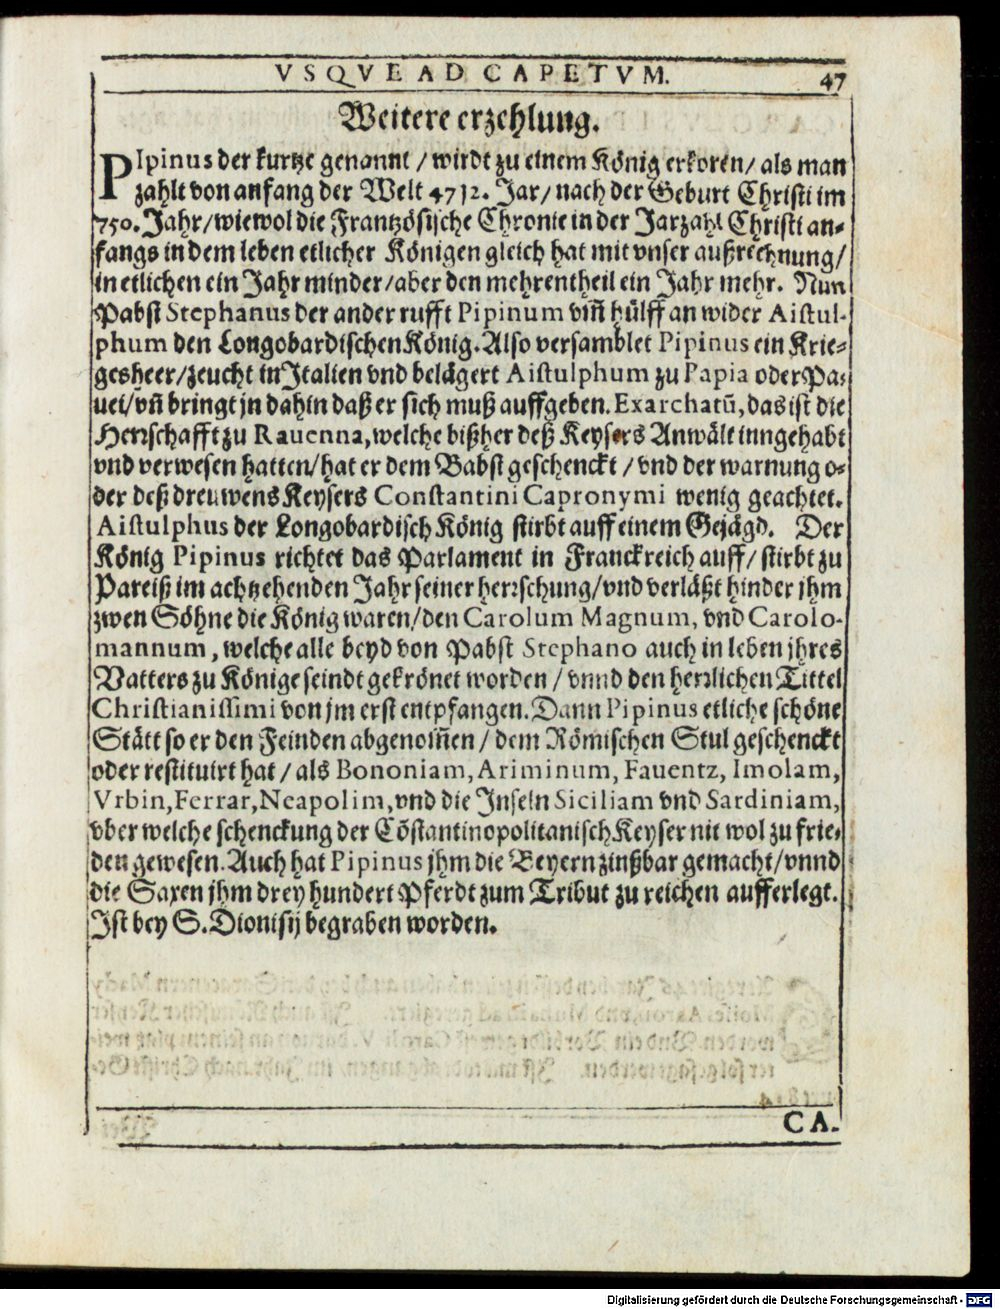 VSQVE AD CAPETVM. 47
Weitere erzehlung.
PIpinus der kurtze genannt / wirdt zu einem König erkoren / als man
zahlt von anfang der Welt 4712. Jar / nach der Geburt Christi im
750. Jahr / wiewol die Frantzösische Chronic in der Jarzahl Christi an-
fangs in dem leben etlicher Königen gleich hat mit vnser außrechnung /
in etlichen ein Jahr minder / aber den mehrentheil ein Jahr mehr. Nun
Pabst Stephanus der ander rufft Pipinum vm̃ hülff an wider Aistul-
phum den Longobardischen König. Also versamblet Pipinus ein Krie-
gesheer / zeucht in Italien vnd belägert Aistulphum zu Papia oder Pa-
uei / vñ bringt jn dahin daß er sich muß auffgeben. Exarchatũ, das ist die
Herrschafft zu Rauenna, welche bißher deß Keysers Anwält inngehabt
vnd verwesen hatten / hat er dem Babst geschenckt / vnd der warnung o-
der deß dreuwens Keysers Constantini Capronymi wenig geachtet.
Aistulphus der Longobardisch König stirbt auff einem Gejägd. Der
König Pipinus richtet das Parlament in Franckreich auff / stirbt zu
Pareiß im achtzehenden Jahr seiner herrschung / vnd verläßt hinder jhm
zwen Söhne die König waren / den Carolum Magnum, vnd Carolo-
mannum, welche alle beyd von Pabst Stephano auch in leben jhres
Vatters zu Könige seindt gekrönet worden / vnnd den herrlichen Tittel
Christianissimi von jm erst entpfangen. Dann Pipinus etliche schöne
Stätt so er den Feinden abgenom̃en / dem Römischen Stul geschenckt
oder restituirt hat / als Bononiam, Ariminum, Fauentz, Imolam,
Vrbin, Ferrar, Neapolim, vnd die Inseln Siciliam vnd Sardiniam,
vber welche schenckung der Cõstantinopolitanisch Keyser nit wol zu frie-
den gewesen. Auch hat Pipinus jhm die Beyern zinßbar gemacht / vnnd
die Saxen jhm drey hundert Pferdt zum Tribut zu reichen aufferlegt.
Ist bey S. Dionisij begraben worden.
CA.
Digitalisierung gefördert durch die Deutsche Forschungsgemeinschaft - DFG